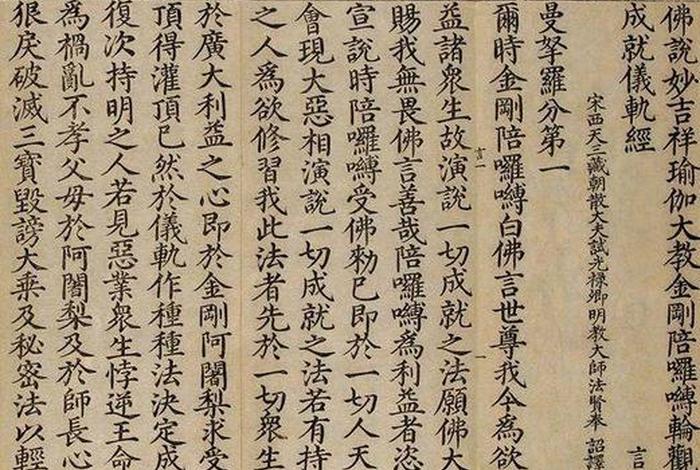 佛說妙吉祥瑜伽大教金剛陪囉嚩輪觀
成就儀軌經 言
宋西天三藏朝散大夫試光祿卿明教大師法賢奉 詔譯
曼拏羅分第一
爾時金剛陪囉嚩白佛言世尊我今為欲
言一 一
益諸衆生故演說一切成就之法願佛大
賜我無畏佛言善哉陪囉嚩為利益者恣
宣說時陪囉嚩受佛勑已即於一切人天
會現大惡相演說一切成就之法若有持
之人為欲修習我此法者先於一切衆生
於廣大利益之心即於金剛阿闍梨求受
頂得灌頂已然於儀軌作種種法決定成
復次持明之人若見惡業衆生悖逆王命
為禍亂不孝父母於阿闍梨及於師長心
狠戾破滅三寶毀謗大乘及秘密法以輕